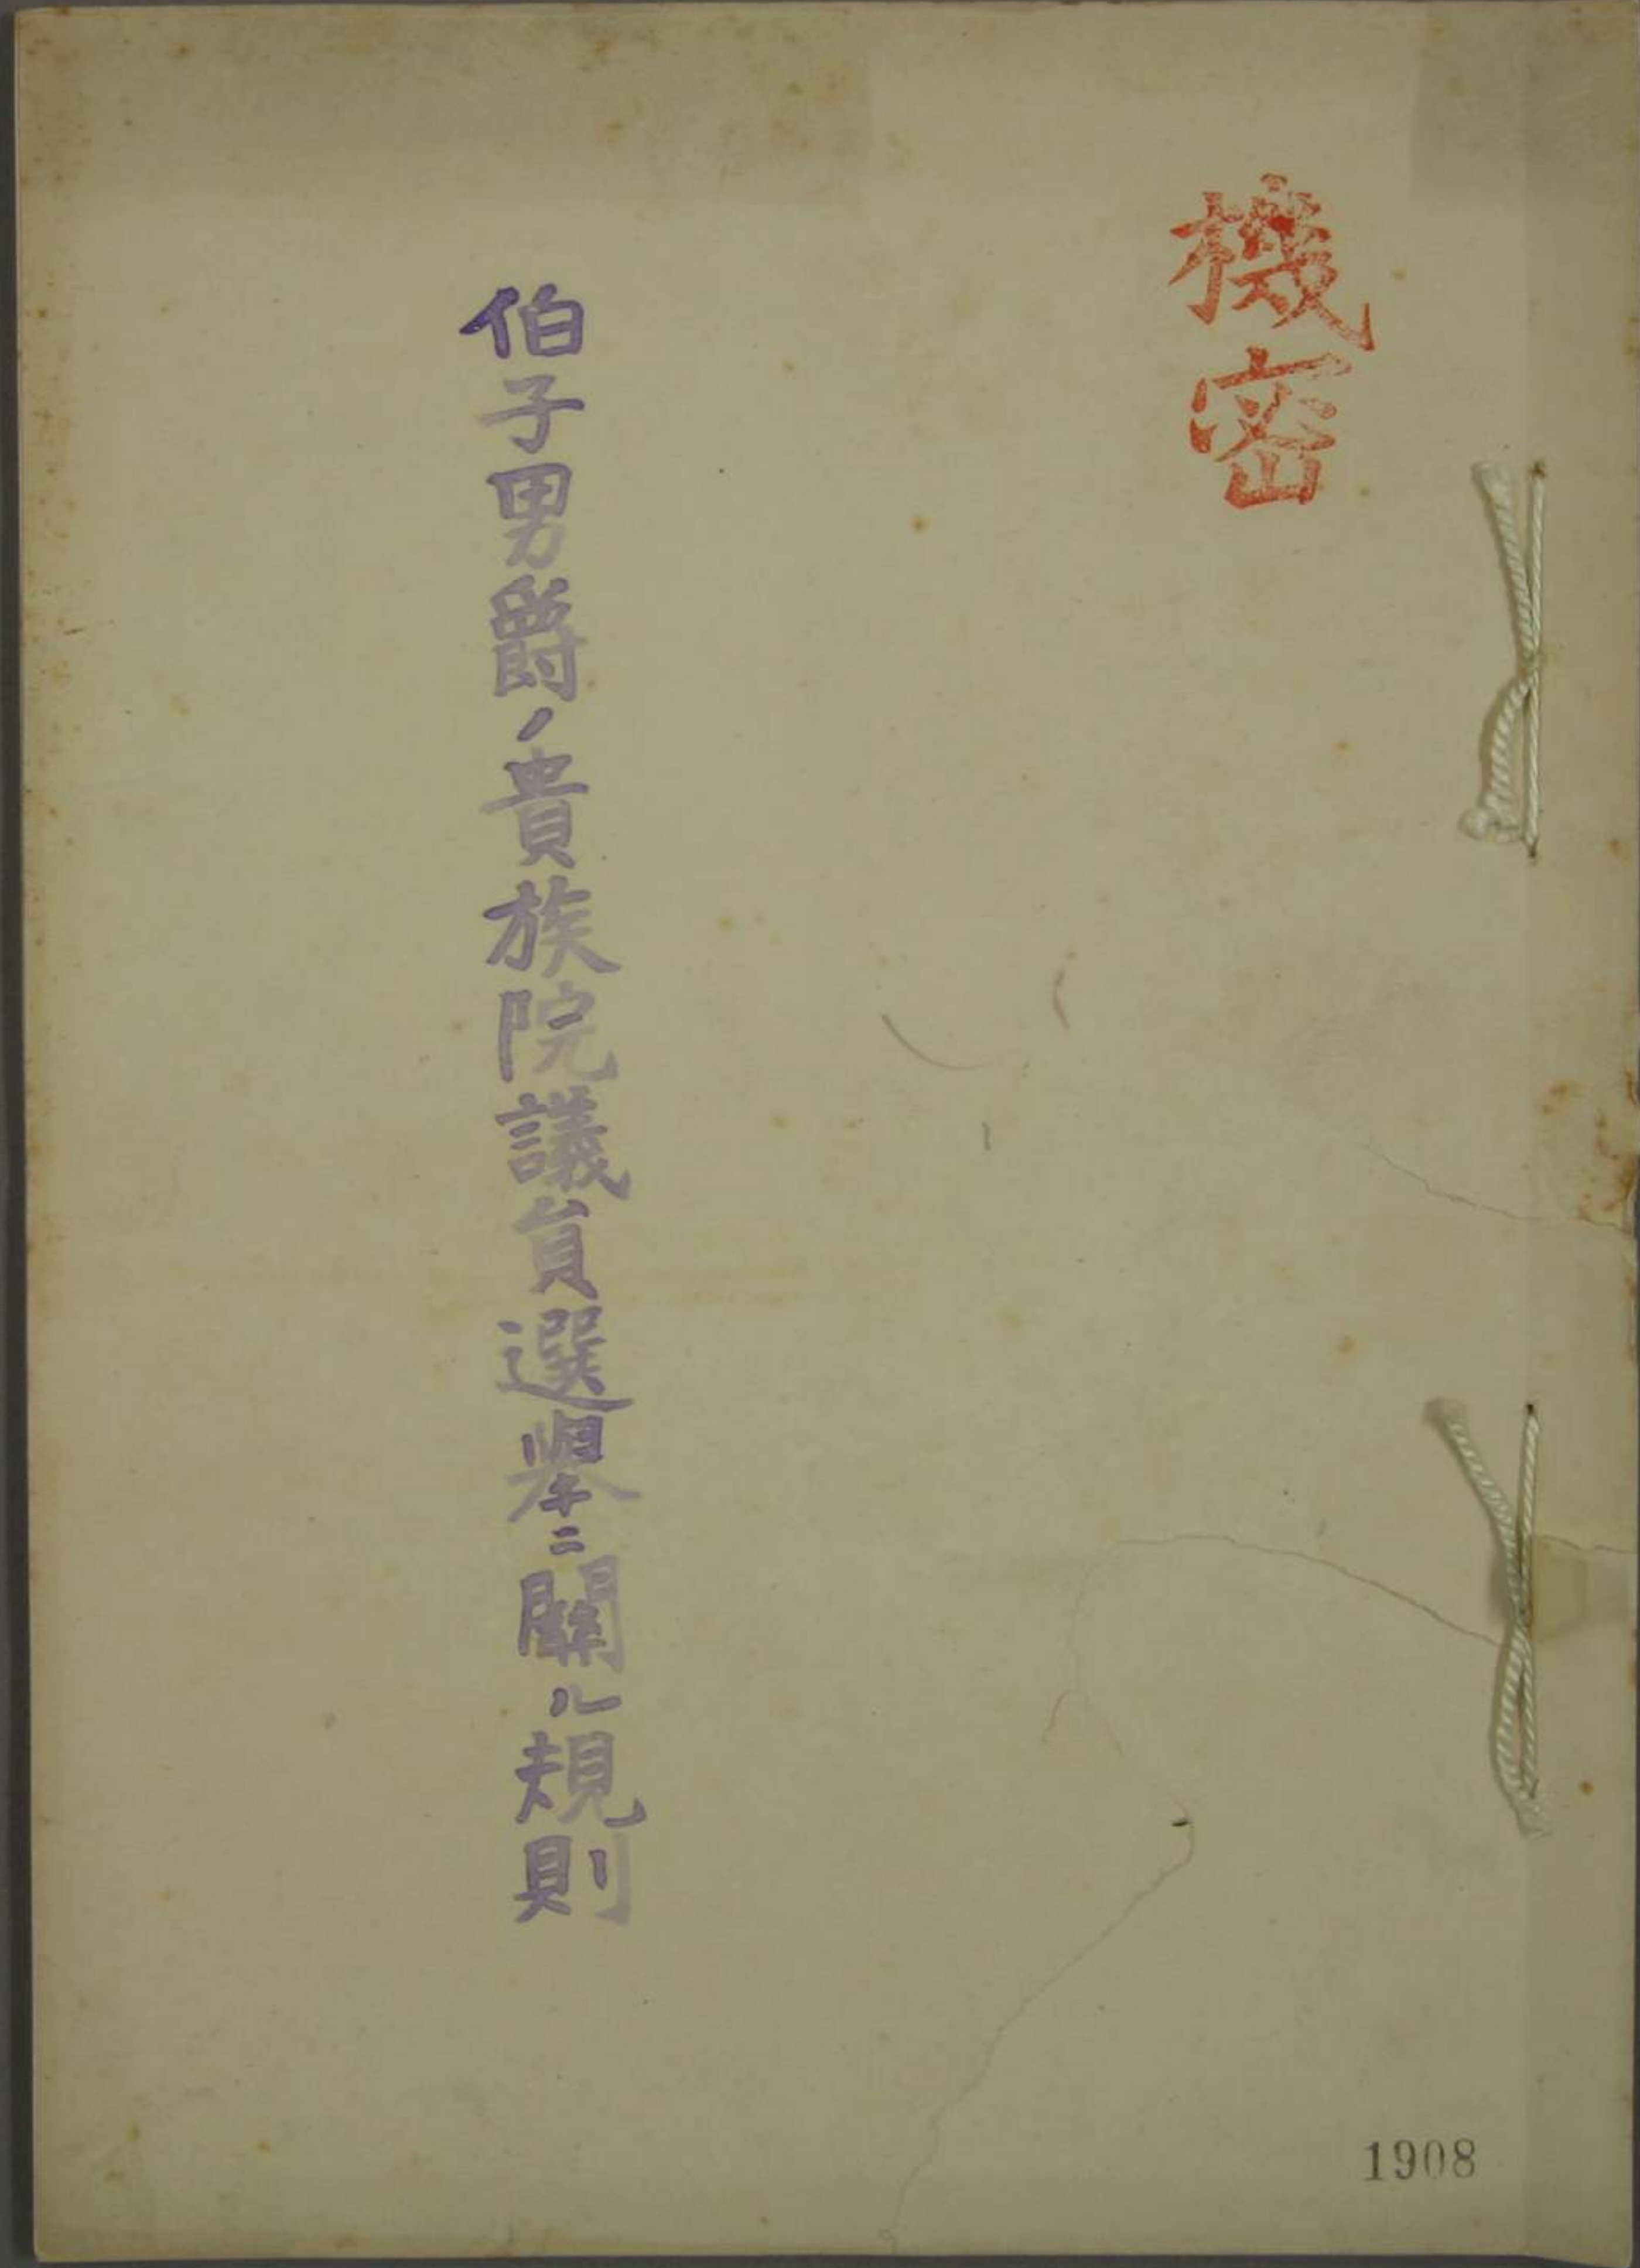 機密
伯子男爵ノ貴族院議員選擧ニ關ル規則
1908